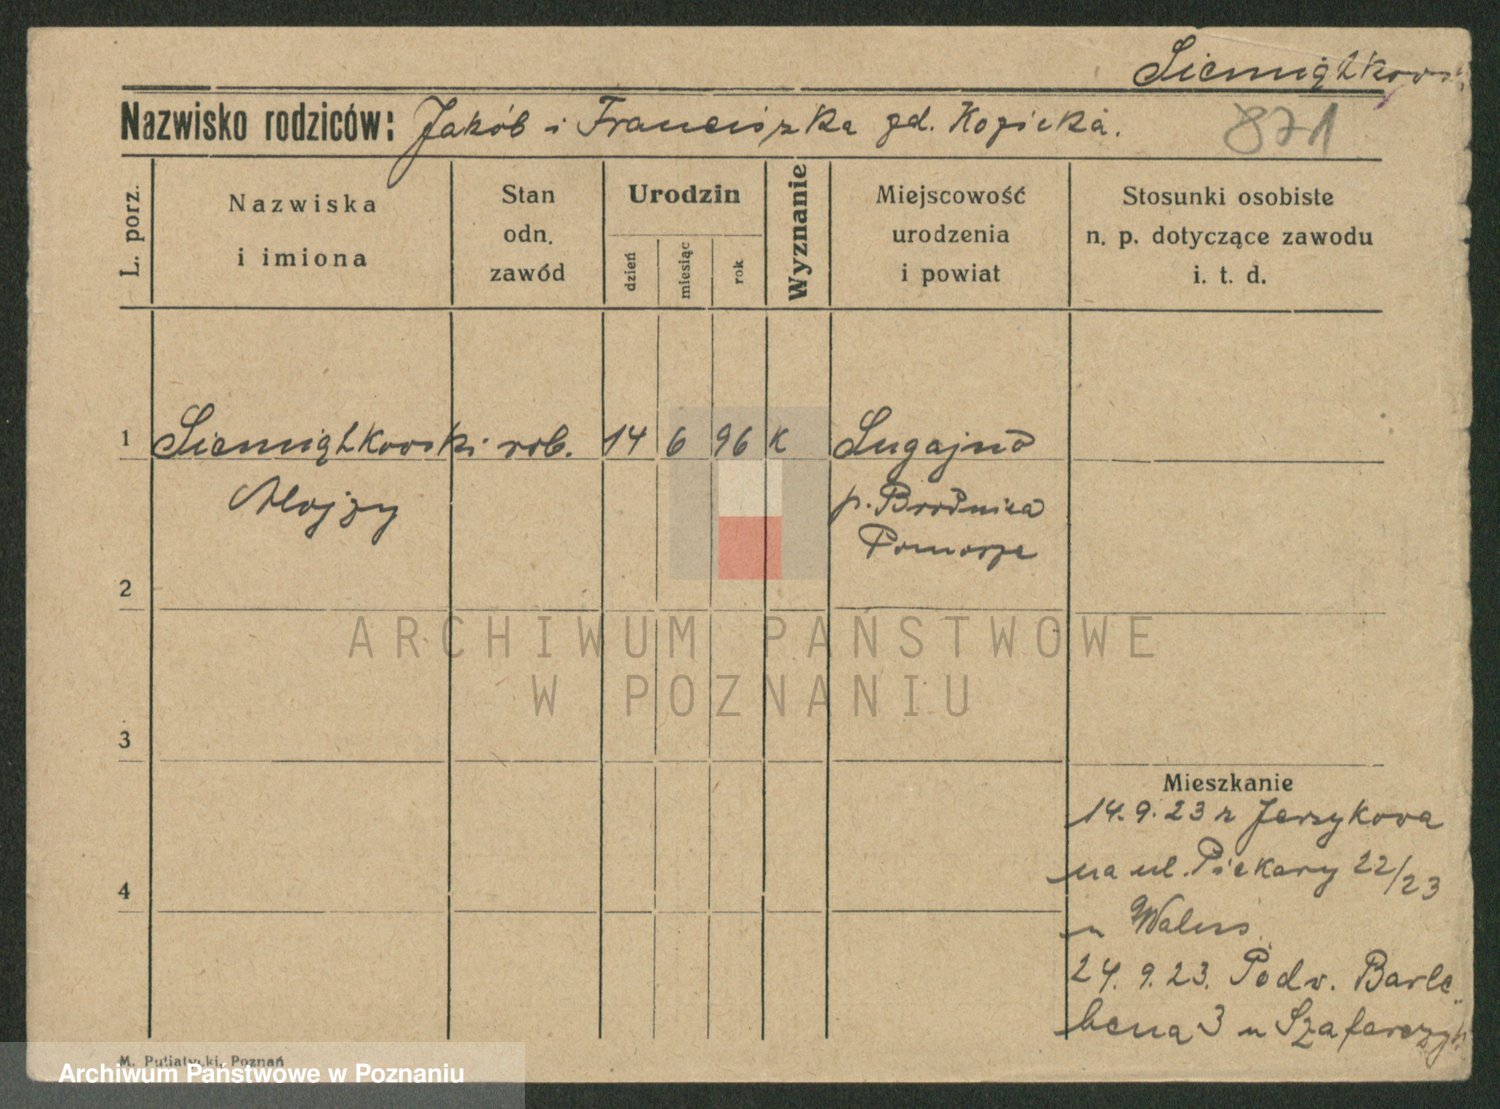 Siemiątkowsk
Nazwisko rodziców: Jakób i Franciszka gd. Kozicka.
871
L. porz.
Nazwiska
i imiona
Stan
odn.
zawód
Urodzin
dzień
miesiąc
rok
Wyznanie
Miejscowość
urodzenia
i powiat
Stosunki osobiste
n. p. dotyczące zawodu
i. t. d.
1 Siemiątkowski rob. 14 6 96 K
Alojzy
p. Brodnica
Pomorze
2
ARCHIWUM PAŃSTWOWE
W POZNANIU
3
Mieszkanie
14.9.23 z Jerzykowa
na ul. Piekary 22/23
4
u
24.9.23.
3 u
M. Putiatycki, Poznań
Archiwum Państwowe w Poznaniu